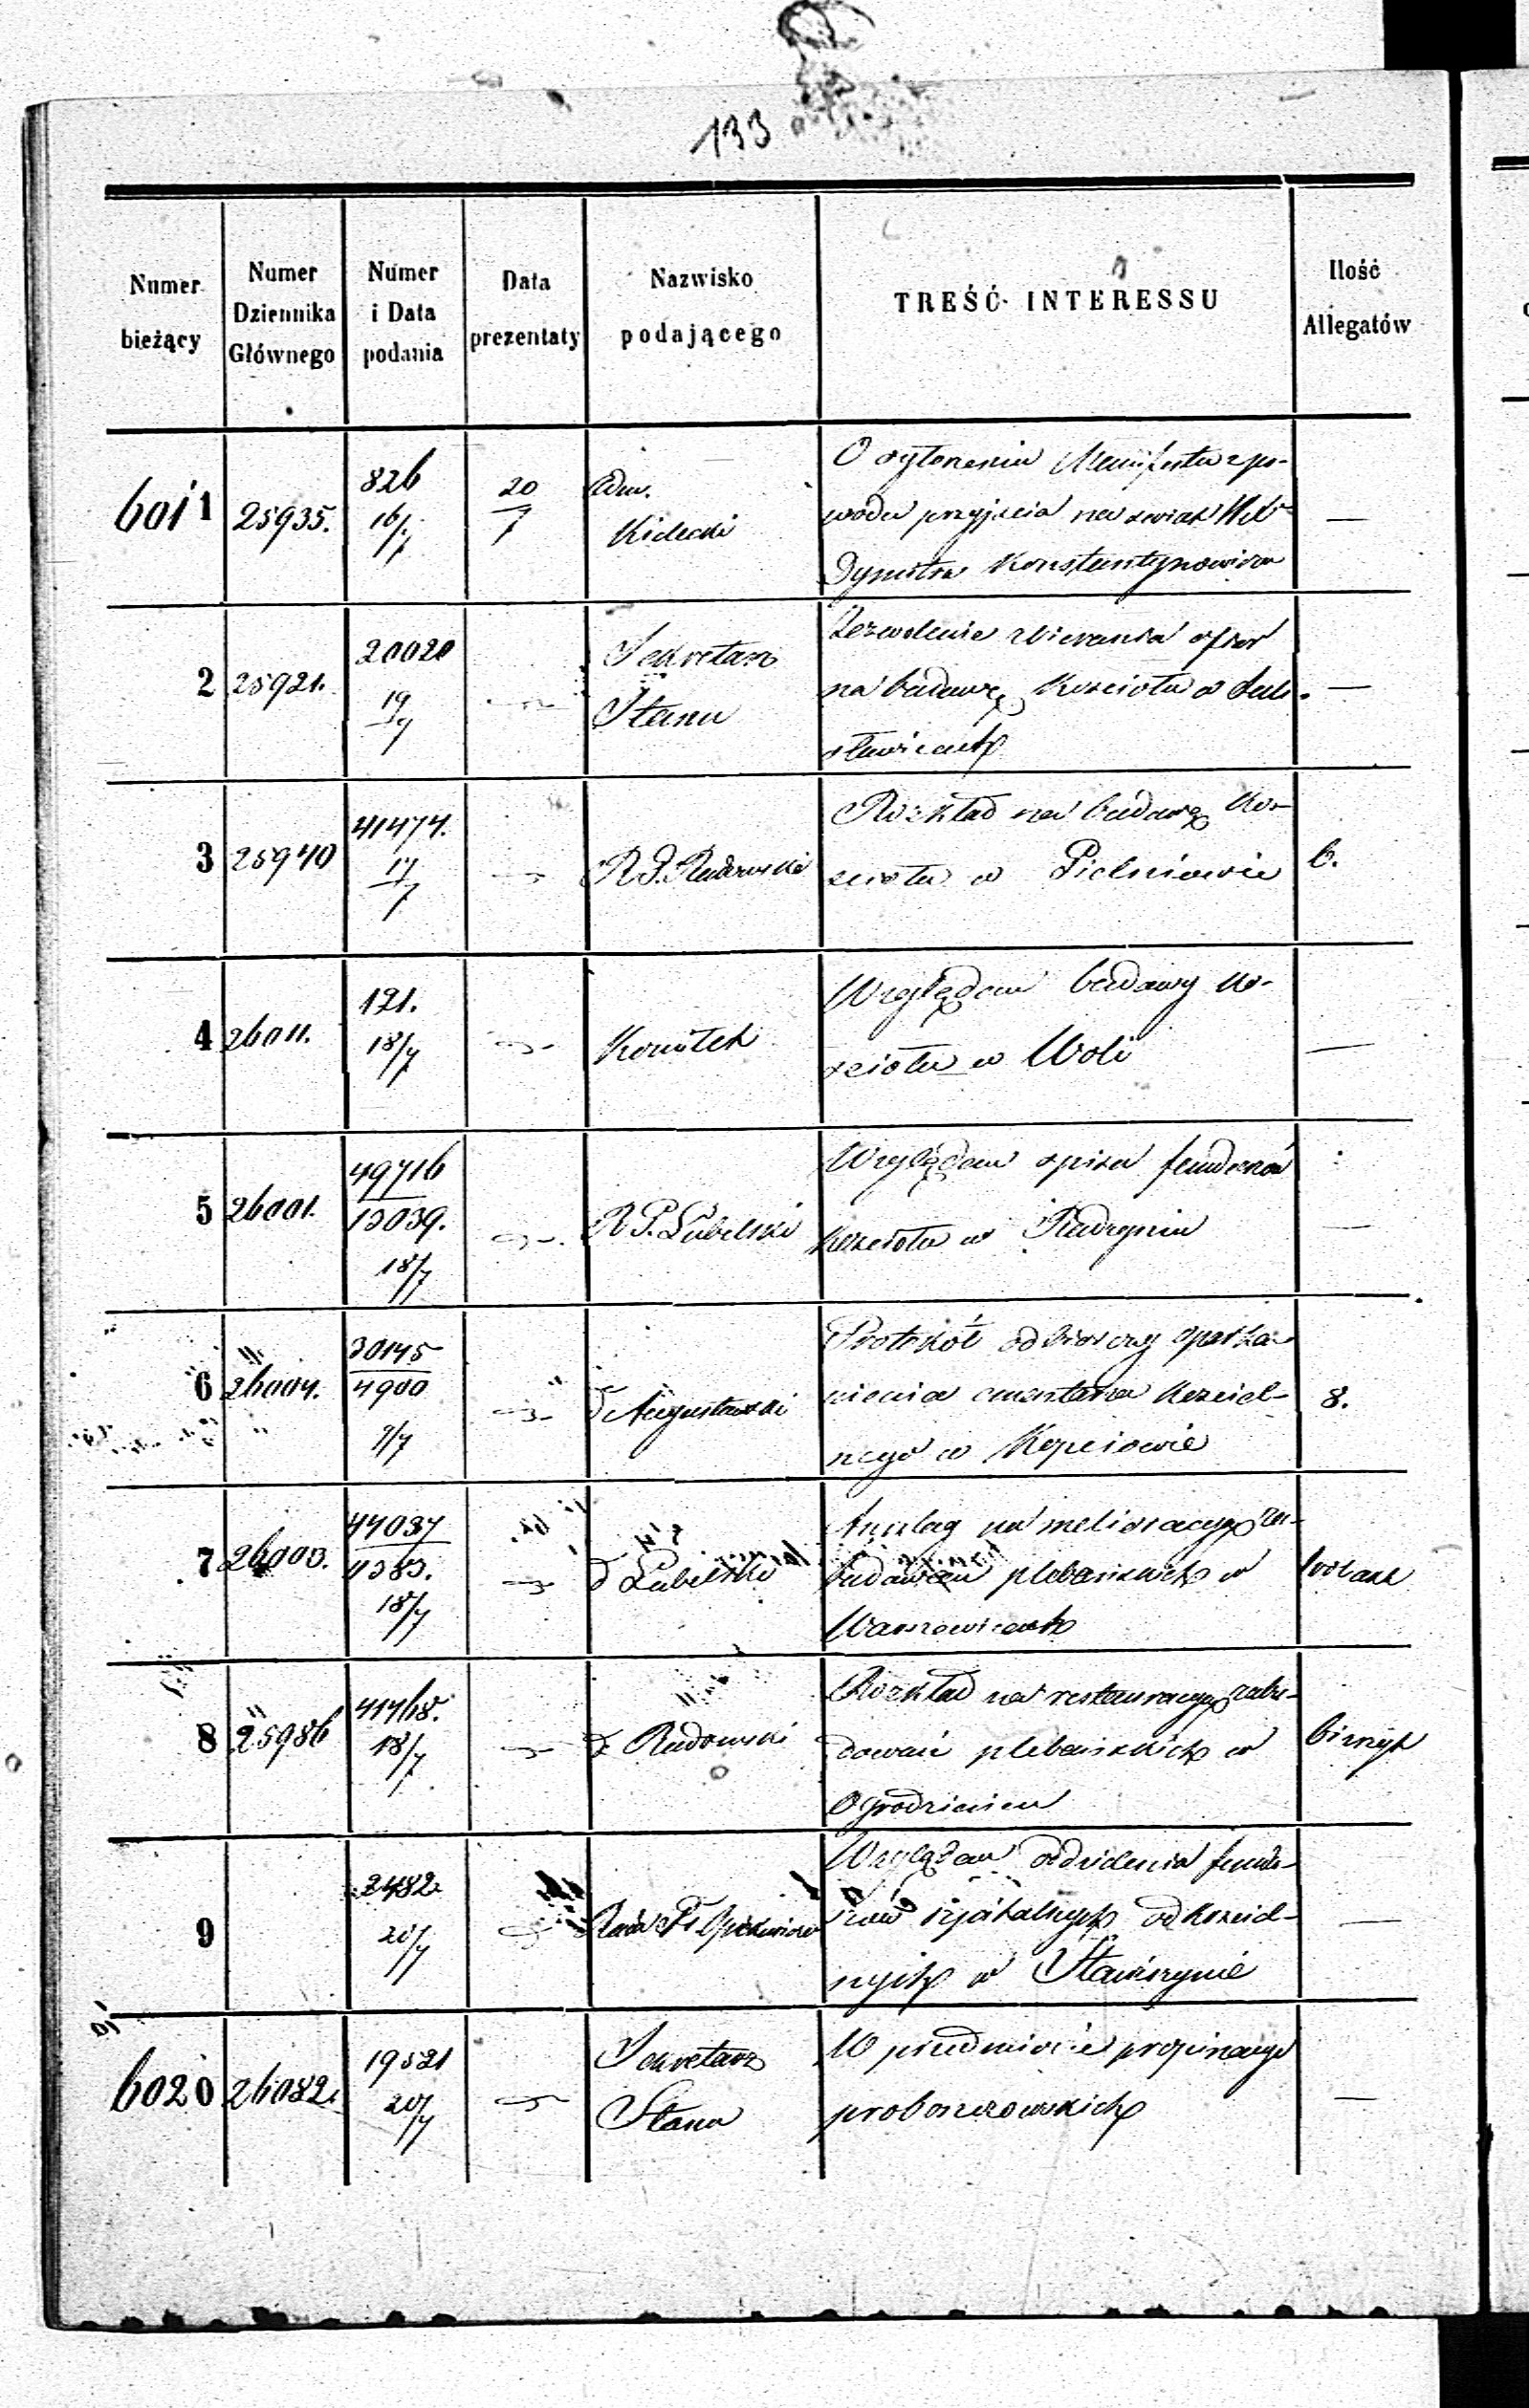 133
Numer bieżący
Numer Dziennika Głównego
Numer i Data podania
Data prezentaty
Nazwisko podającego
TREŚĆ INTERESSU
Ilość Allegatów
6011 25935. 826 16/7 20/7 Adm. Kielecki
O ogłoszeniu Manifestu z po-
wodu przyjścia na świat
Dymitra Konstantynowicza
—
2 25921. 20020 19/7 Sekretarz Stanu
Zezwolenie zbierania ofiar
na budowę Kościoła w
sławicach
—
3 25940 41474. 17/7 R. G. Radomski
Rozkład na budowę Ko-
ścioła w Pielniowie
6.
4 26011. 121. 18/7 Komitet
Względem budowy Ko-
ścioła w Woli
—
5 26001. 49716 13039. 18/7 R. G. Lubelski
Względem spisu funduszów
Kościoła w Radzyniu
—
6 26004. 30145 4900 9/7 d Augustowski
Protokół odbiorczy oparka-
nienia cmentarza Kościel-
nego w Kopciowie
8.
7 26003. 44037 4383. 18/7 d Lubelski
Anszlag na melioracyę za-
budowań plebańskich w
Wąwolnica
8 25986 41468. 18/7 d Radomski
Rozkład na restauracyę zabu-
dowań plebańskich w
Ogrodzieńcu
9 2482. 20/7
Względem oddzielenia fundu-
szów szpitalnych od Kościel-
nych w Stawiszynie
—
6020 26082. 19521 20/7 Sekretarz Stanu
W przedmiocie propinacyi
proboszczowskich
—